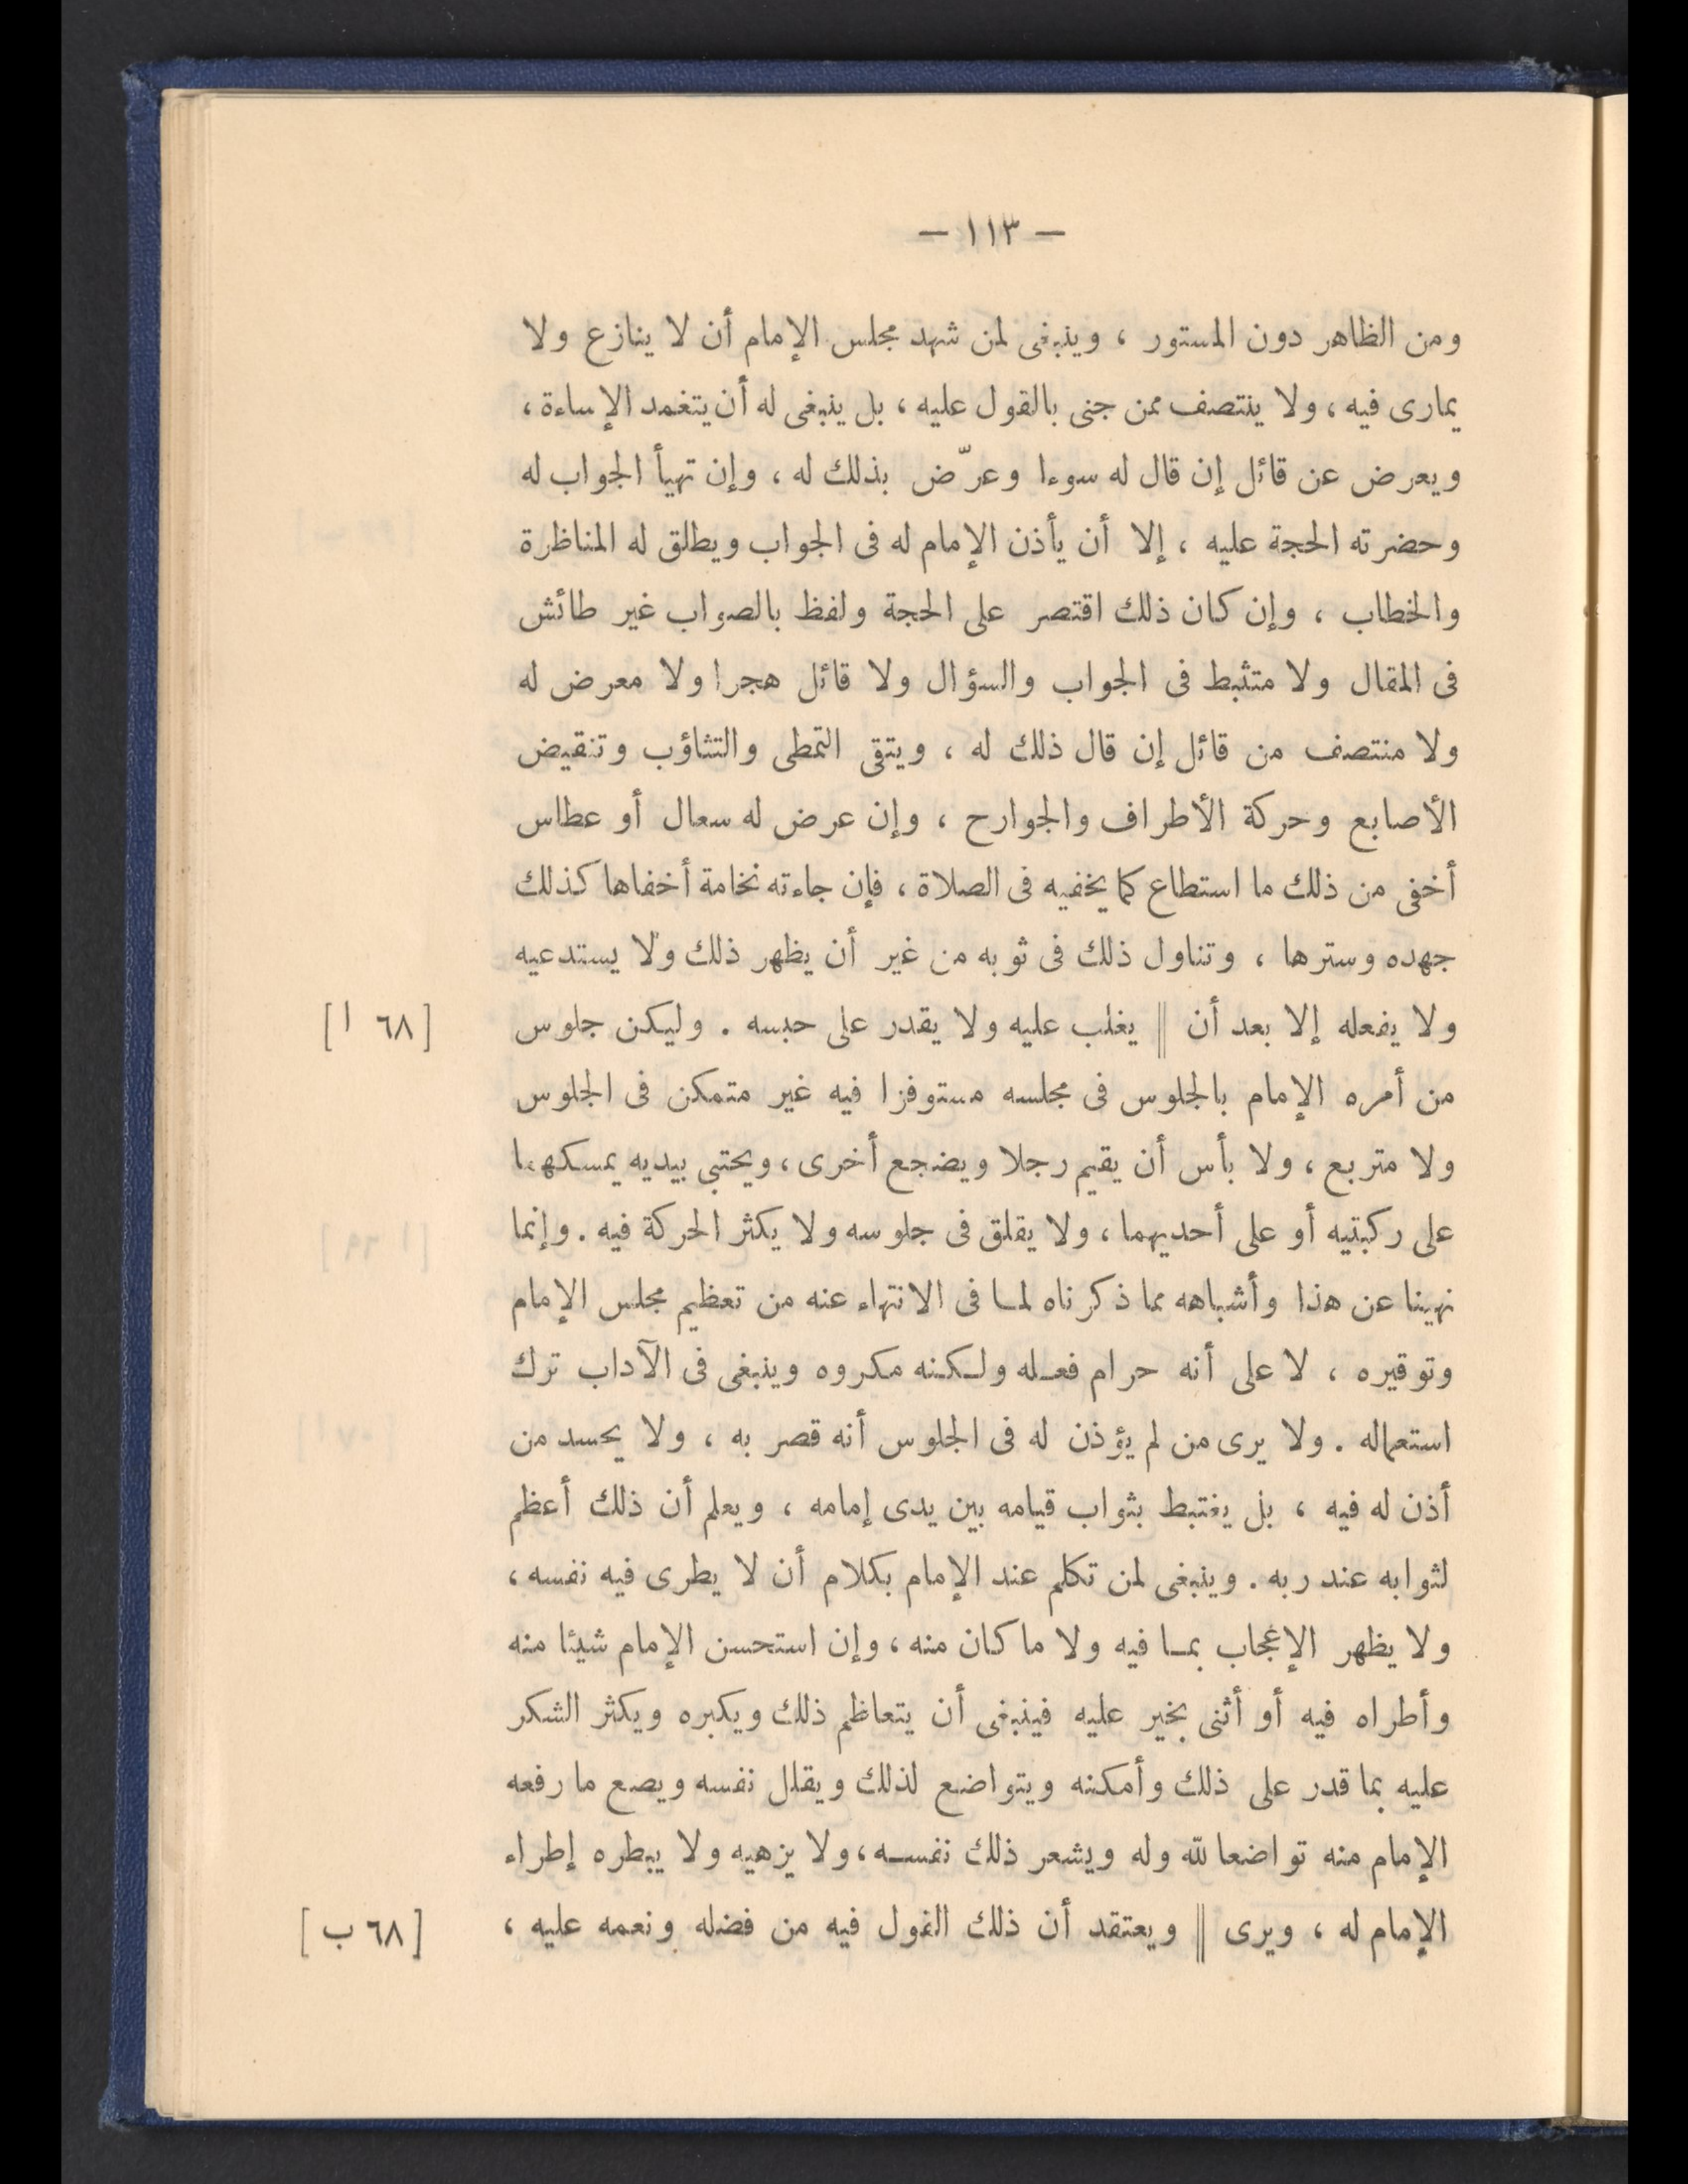 — ١١٣ —
ومن الظاهر دون المستور ، وينبغى لمن شهد مجلس الإمام أن لا ينازع ولا
يمارى فيه ، ولا ينتصف ممن جنى بالقول عليه ، بل ينبغى له أن يتغمد الإساءة ،
ويعرض عن قائل إن قال له سوءا وعرّض بذلك له ، وإن تهيأ الجواب له
وحضرته الحجة عليه ، إلا أن يأذن الإمام له فى الجواب ويطلق له المناظرة
والخطاب ، وإن كان ذلك اقتصر على الحجة ولفظ بالصواب غير طائش
فى المقال ولا متثبط فى الجواب والسؤال ولا قائل هجرا ولا معرض له
ولا منتصف من قائل إن قال ذلك له ، ويتقى التمطى والتثاؤب وتنقيض
الأصابع وحركة الأطراف والجوارح ، وإن عرض له سعال أو عطاس
أخفى من ذلك ما استطاع كما يخفيه فى الصلاة ، فإن جاءته نخامة أخفاها كذلك
جهده وسترها ، وتناول ذلك فى ثوبه من غير أن يظهر ذلك ولا يستدعيه
ولا يفعله إلا بعد أن || يغلب عليه ولا يقدر على حبسه . وليكن جلوس [ ٦٨ ا ]
من أمره الإمام بالجلوس فى مجلسه مستوفزا فيه غير متمكن فى الجلوس
ولا متربع ، ولا بأس أن يقيم رجلا ويضجع أخرى ، ويحتبي بيديه يمسكهما
على ركبتيه أو على أحديهما ، ولا يقلق فى جلوسه ولا يكثر الحركة فيه . وإنما
نهينا عن هذا وأشباهه مما ذكرناه لما فى الانتهاء عنه من تعظيم مجلس الإمام
وتوقيره ، لا على أنه حرام فعله ولكنه مكروه وينبغى فى الآداب ترك
استعماله . ولا يرى من لم يؤذن له فى الجلوس أنه قصر به ، ولا يحسد من
أذن له فيه ، بل يغتبط بثواب قيامه بين يدى إمامه ، ويعلم أن ذلك أعظم
لثوابه عند ربه . وينبغى لمن تكلم عند الإمام بكلام أن لا يطرى فيه نفسه ،
ولا يظهر الإعجاب بما فيه ولا ما كان منه ، وإن استحسن الإمام شيئا منه
وأطراه فيه أو أثنى بخير عليه فينبغى أن يتعاظم ذلك ويكبره ويكثر الشكر
عليه بما قدر على ذلك وأمكنه ويتواضع لذلك ويقلل نفسه ويصع ما رفعه
الإمام منه تواضعا لله وله ويشعر ذلك نفسه ، ولا يزهيه ولا يبطره إطراء
الإمام له ، ويرى || ويعتقد أن ذلك القول فيه من فضله ونعمه عليه ، [ ٦٨ ب ]